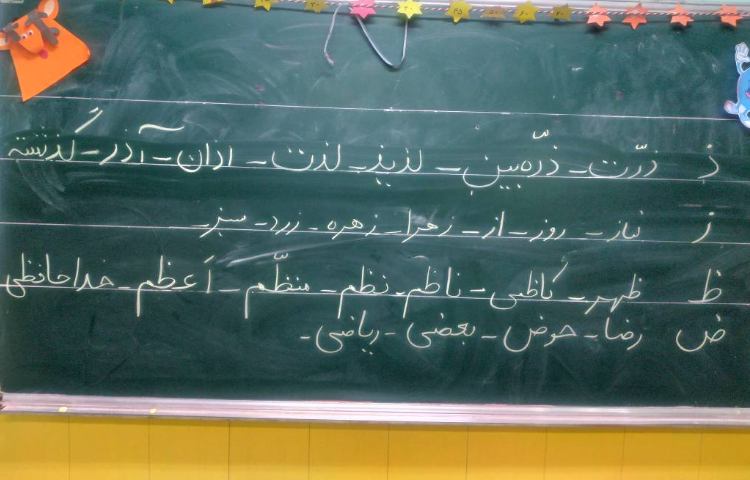 ذ ذرّت - ذرّه‌بین - لذیذ - لذت - اذان - آذر - گذشته
ز نیاز - روز - از - زهرا - زهره - زرد - سبز -
ظ ظهر - کاظمی - ناظم - نظم - منظّم - اَعظم - خداحافظی
ض رضا - حوض - بعضی - ریاضی -